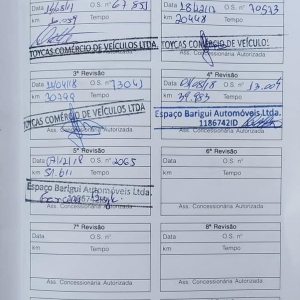 Data 16/08/17 O.S. nº 67.851
km Tempo
TOYCAS COMÉRCIO DE VEÍCULOS LTDA.
Data 28/12/17 O.S. nº 70573
km 20448 Tempo
TOYCAS COMÉRCIO DE VEÍCULOS
3ª Revisão
Data 21/04/18 O.S. nº 73041
km 30299 Tempo
TOYCAS COMÉRCIO DE VEÍCULOS LTDA
Ass. Concessionária Autorizada
4ª Revisão
Data 08/08/18 O.S. nº 13.009
km 39.893 Tempo
Espaço Barigui Automóveis Ltda.
1186742ID
Ass. Concessionária Autorizada
5ª Revisão
Data 07/12/18 O.S. nº 2065
km 51.611 Tempo
Espaço Barigui Automóveis Ltda.
Ass. Concessionária Autorizada
6ª Revisão
Data O.S. nº
km Tempo
Ass. Concessionária Autorizada
7ª Revisão
Data O.S. nº
km Tempo
Ass. Concessionária Autorizada
Data O.S. nº
km Tempo
Ass. Concessionária Autorizada